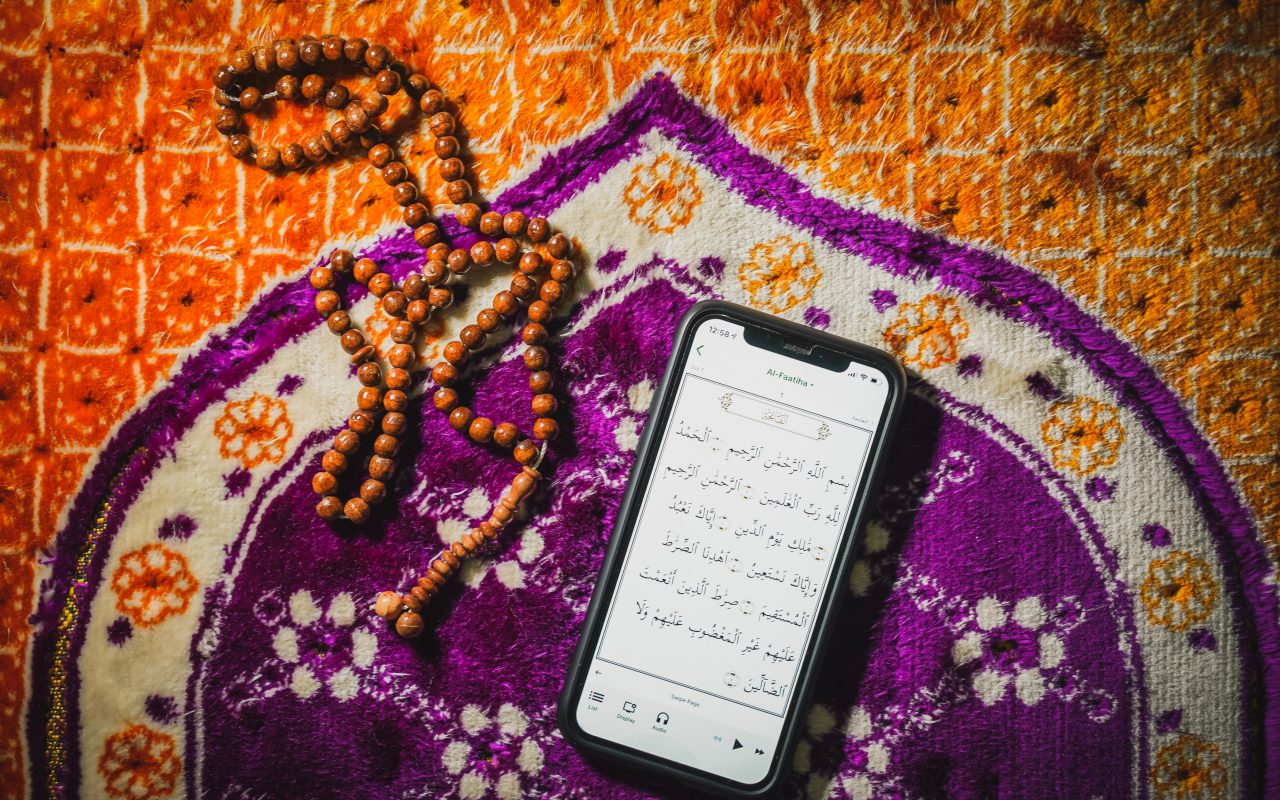 12:58
Al-Faatiha
Juz 1
1
بِسْمِ ٱللَّهِ ٱلرَّحْمَٰنِ ٱلرَّحِيمِ ۝ ٱلْحَمْدُ
لِلَّهِ رَبِّ ٱلْعَٰلَمِينَ ۝ ٱلرَّحْمَٰنِ ٱلرَّحِيمِ
۝ مَٰلِكِ يَوْمِ ٱلدِّينِ ۝ إِيَّاكَ نَعْبُدُ
وَإِيَّاكَ نَسْتَعِينُ ۝ ٱهْدِنَا ٱلصِّرَٰطَ
ٱلْمُسْتَقِيمَ ۝ صِرَٰطَ ٱلَّذِينَ أَنْعَمْتَ
عَلَيْهِمْ غَيْرِ ٱلْمَغْضُوبِ عَلَيْهِمْ وَلَا
ٱلضَّآلِّينَ ۝
Swipe Page
List Display Audio